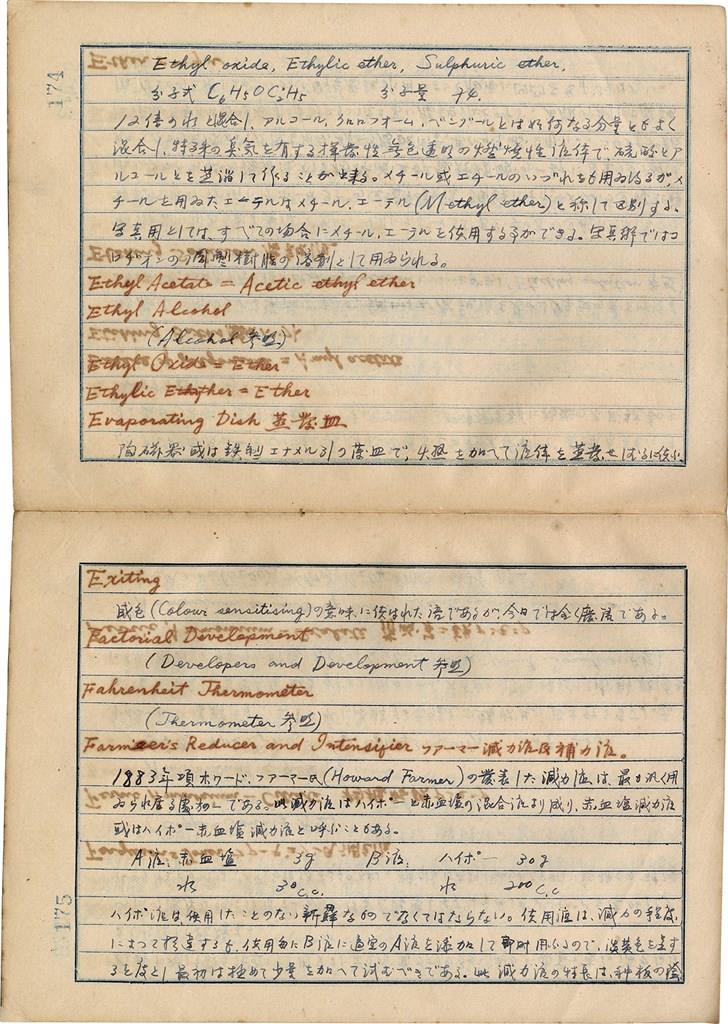 174
Ethyl oxide, Ethylic ether, Sulphuric ether,
分子式 C₂H₅OC₂H₅ 分子量 74.
12倍の水と混合し、アルコール、クロロフォーム、ベンゾールとは如何なる分量ともよく
混合し、特殊の臭気を有する揮発性無色透明の燃焼性液体で、硫酸とア
ルコールとを蒸溜して作ることが出来る。メチール或エチールのいづれをも用ゐるが、メ
チールを用ゐたエーテルはメチール、エーテル(Methyl ether)と称して区別する。
写真用としては、すべての場合にメチール、エーテルを使用する事ができる。写真術ではコ
ロヂオンの溶剤として用ゐられる。
Ethyl Acetate = Acetic ethyl ether
Ethyl Alcohol
(Alcohol 参照)
Ethyl Oxide = Ether
Ethylic Ether = Ether
Evaporating Dish 蒸発皿
陶磁器或は鉄製エナメル引の薬皿で、火熱を加へて液体を蒸発せしむるに使ふ
Exiting
感色(Colour sensitising)の意味に使はれた語であるが、今日では全く廃語である。
Factorial Development
(Developers and Development 参照)
Fahrenheit Thermometer
(Thermometer 参照)
Farmer's Reducer and Intensifier ファーマー減力液及補力液。
1883年頃ホワード、ファーマー氏(Howard Farmer)の発表した減力液は、最も汎く用
ゐられ居る処である。此減力液はハイポーと赤血塩の混合液より成り、赤血塩減力液
或はハイポー赤血塩減力液と呼ぶこともある。
A液: 赤血塩 3g B液: ハイポー 30g
水 30c.c. 水 200c.c
ハイポ液は使用したことのない新鮮なものでなくてはならない。使用液は、減力の程度
によつて相違するも、使用毎にB液に適宜のA液を添加して即時用ゐるので、淡黄色を呈す
るを度とし最初は極めて少量を加へて試むべきである。此減力液の特長は、種板の陰
175